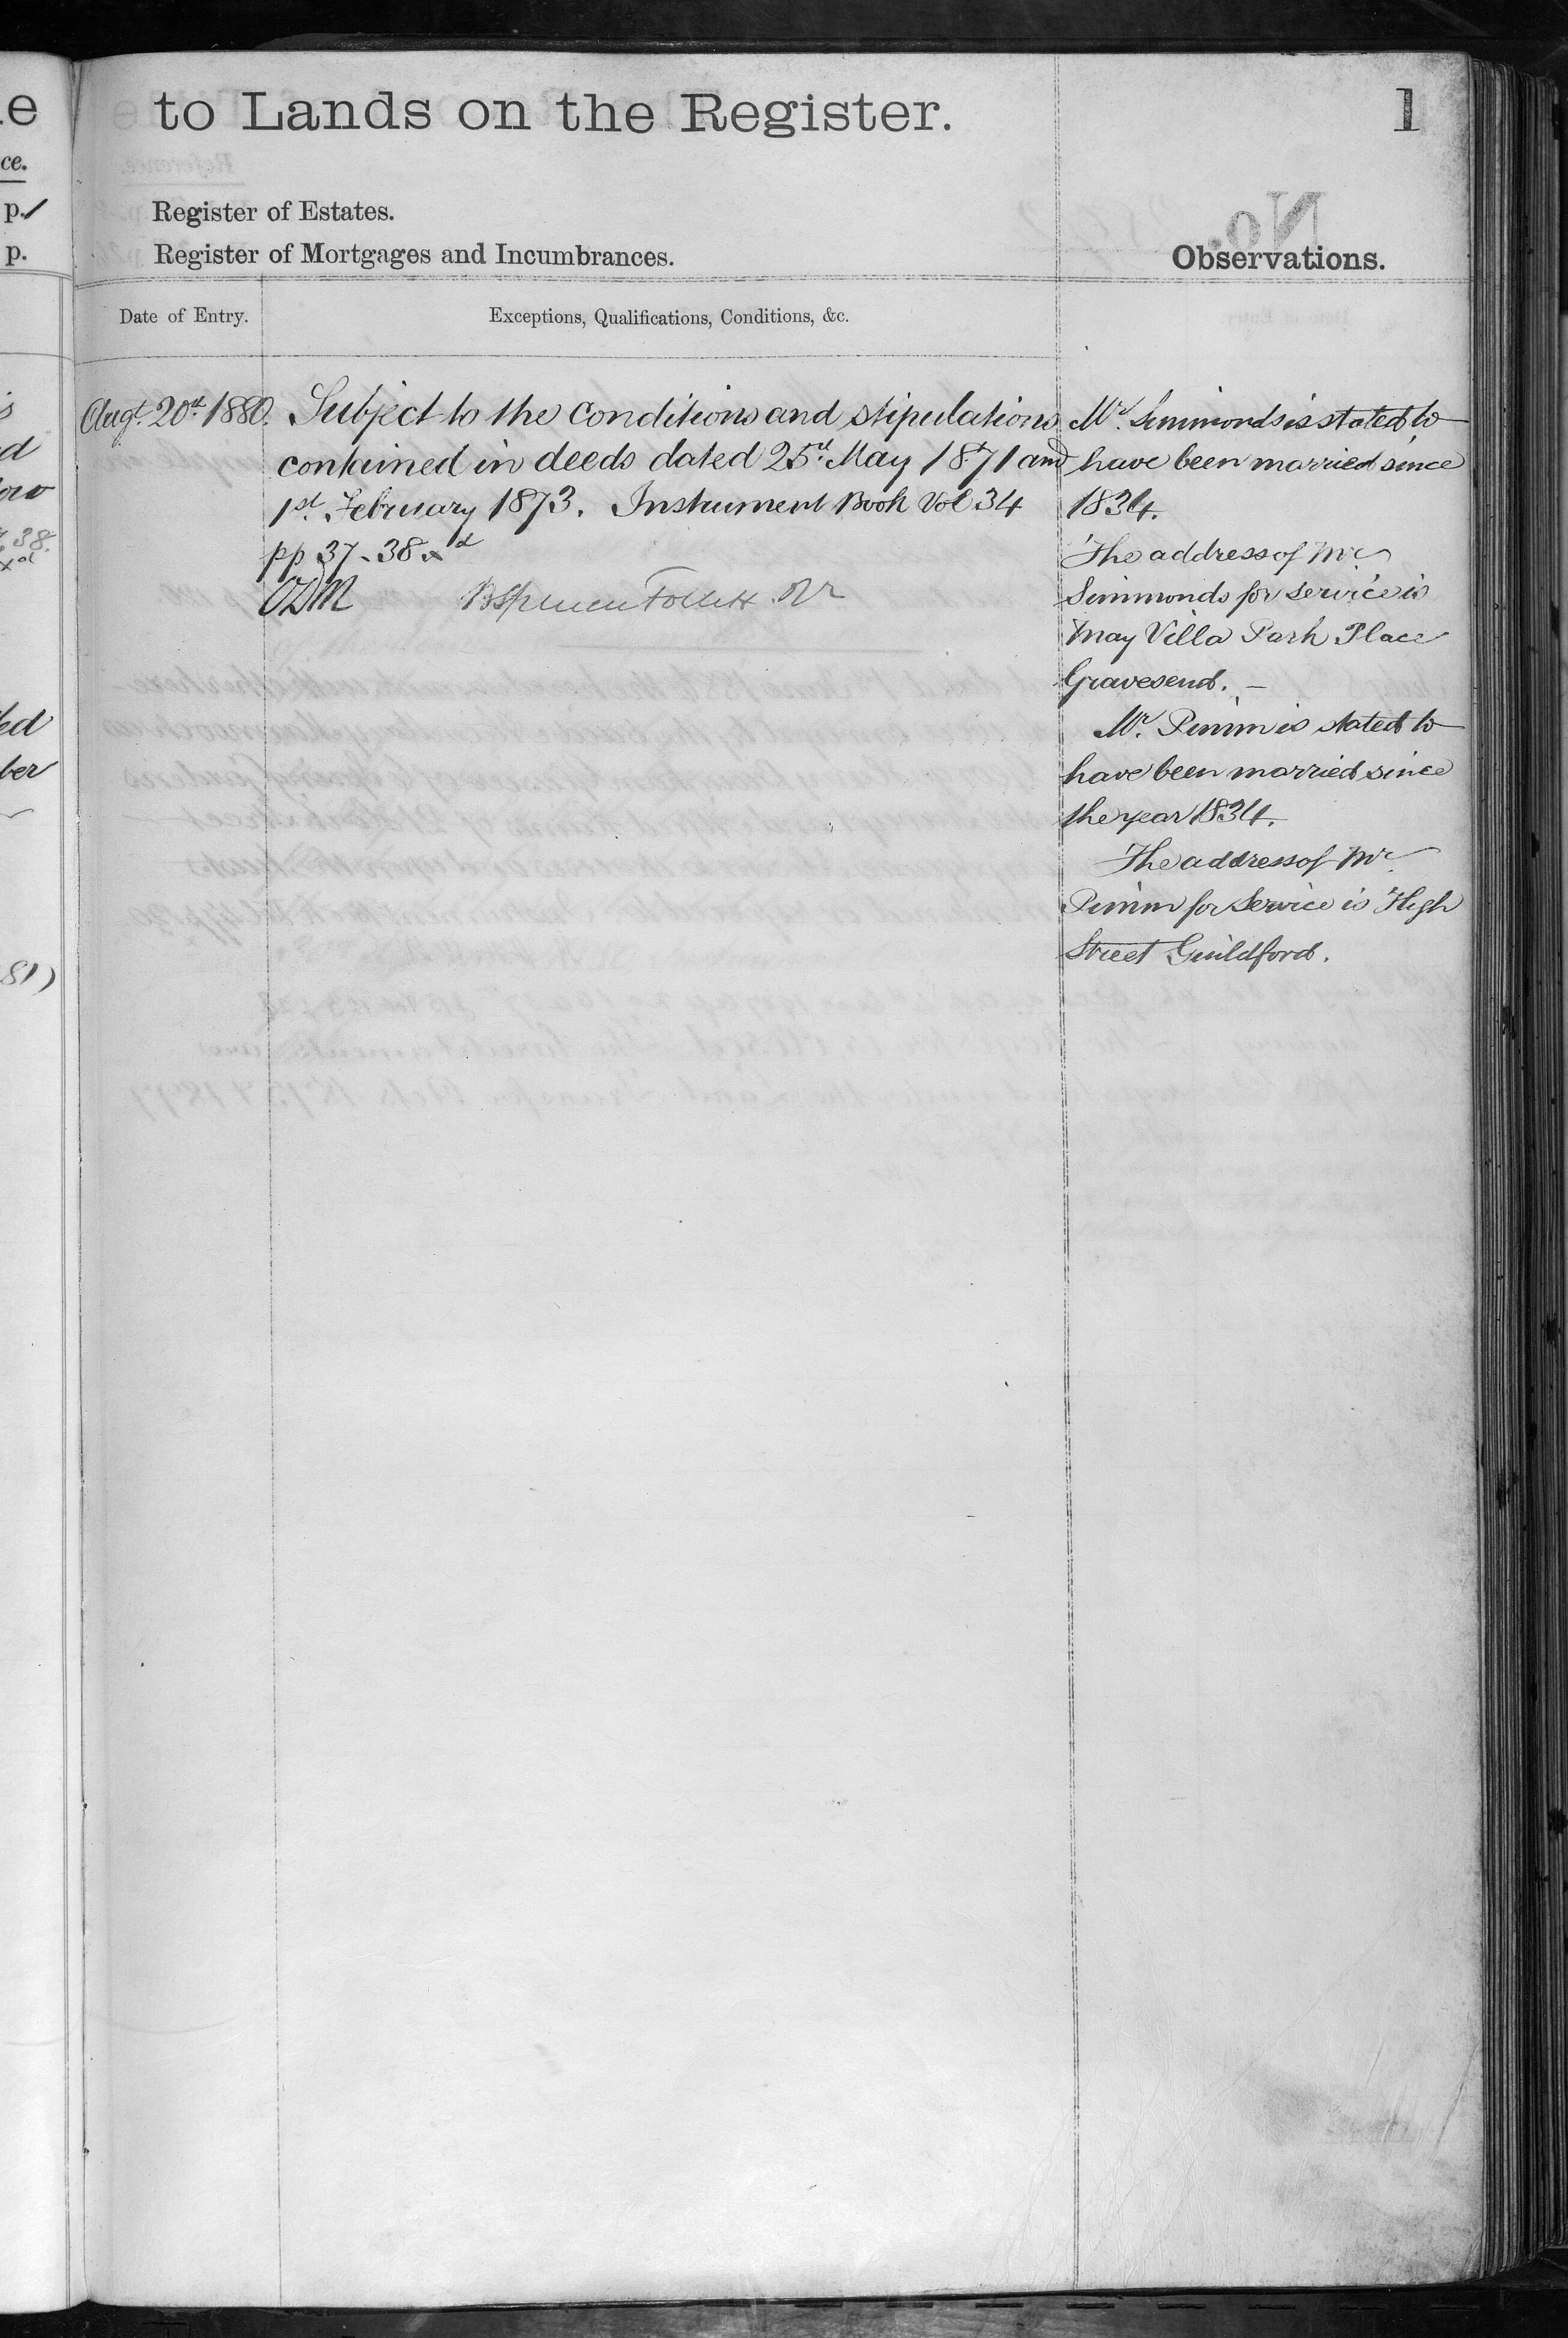 to Lands on the Register.
1
Register of Estates.
Register of Mortgages and Incumbrances.
Observations.
Date of Entry.
Exceptions, Qualifications, Conditions, &c.
Augt. 20th 1880. Subject to the conditions and stipulations
contained in deeds dated 25th May 1871 and
1st February 1873. Instrument Book Vol 34
pp 37-38 xd
ODM BSpencer Follett Rr
Mr. Simmonds is stated to
have been married since
1834.
The address of Mr
Simmonds for service is
May Villa Park Place
Gravesend. —
Mr. Pimm is stated to
have been married since
the year 1834.
The address of Mr.
Pimm for service is High
Street Guildford.